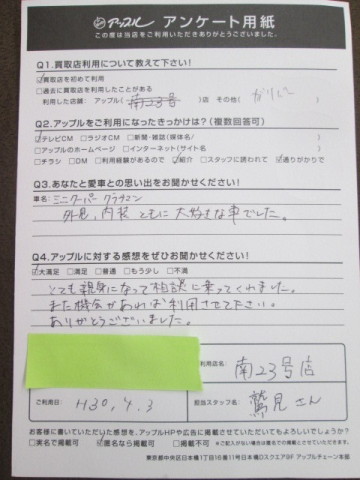 アップル アンケート用紙
この度は当店をご利用いただきありがとうございました。
Q1.買取店利用について教えて下さい!
☑買取店を初めて利用
□過去に買取店を利用したことがある
利用した店舗: アップル( 南23号 )店 その他( ガリバー )
Q2.アップルをご利用になったきっかけは?(複数回答可)
☑テレビCM □ラジオCM □新聞・雑誌(媒体名/ )
□アップルのホームページ □インターネット(サイト名 )
□チラシ □DM □利用経験があるので ☑紹介 □スタッフに誘われて ☑通りがかりで
Q3.あなたと愛車との思い出をお聞かせください!
車名: ミニクーパー クラブマン
外見、内装 ともに 大好きな車でした。
Q4.アップルに対する感想をぜひお聞かせください!
☑大満足 □満足 □普通 □もう少し □不満
とても親身になって相談に乗ってくれました。
また機会があれば利用させて下さい。
ありがとうございました。
利用店名: 南23号店
ご利用日: H30.4.3
担当スタッフ名: 鷲見さん
お客様に書いていただいた感想を、アップルHPや広告に掲載させていただいてもよろしいでしょうか?
□実名で掲載可 ☑匿名なら掲載可 □掲載不可 ※ご記入がない場合は匿名での掲載とさせていただきます。
東京都中央区日本橋1丁目16番11号日本橋DスクエアBF アップルチェーン本部